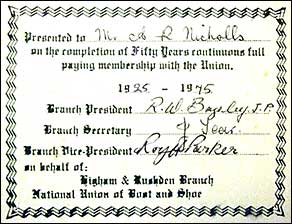 Presented to Mr A R Nicholls
on the completion of Fifty Years continuous full
paying membership with the Union.
1925 - 1975
Branch President R.W. Bayley J.P.
Branch Secretary J
Branch Vice-President Roy A Parker
on behalf of:
Higham & Rushden Branch
National Union of Boot and Shoe